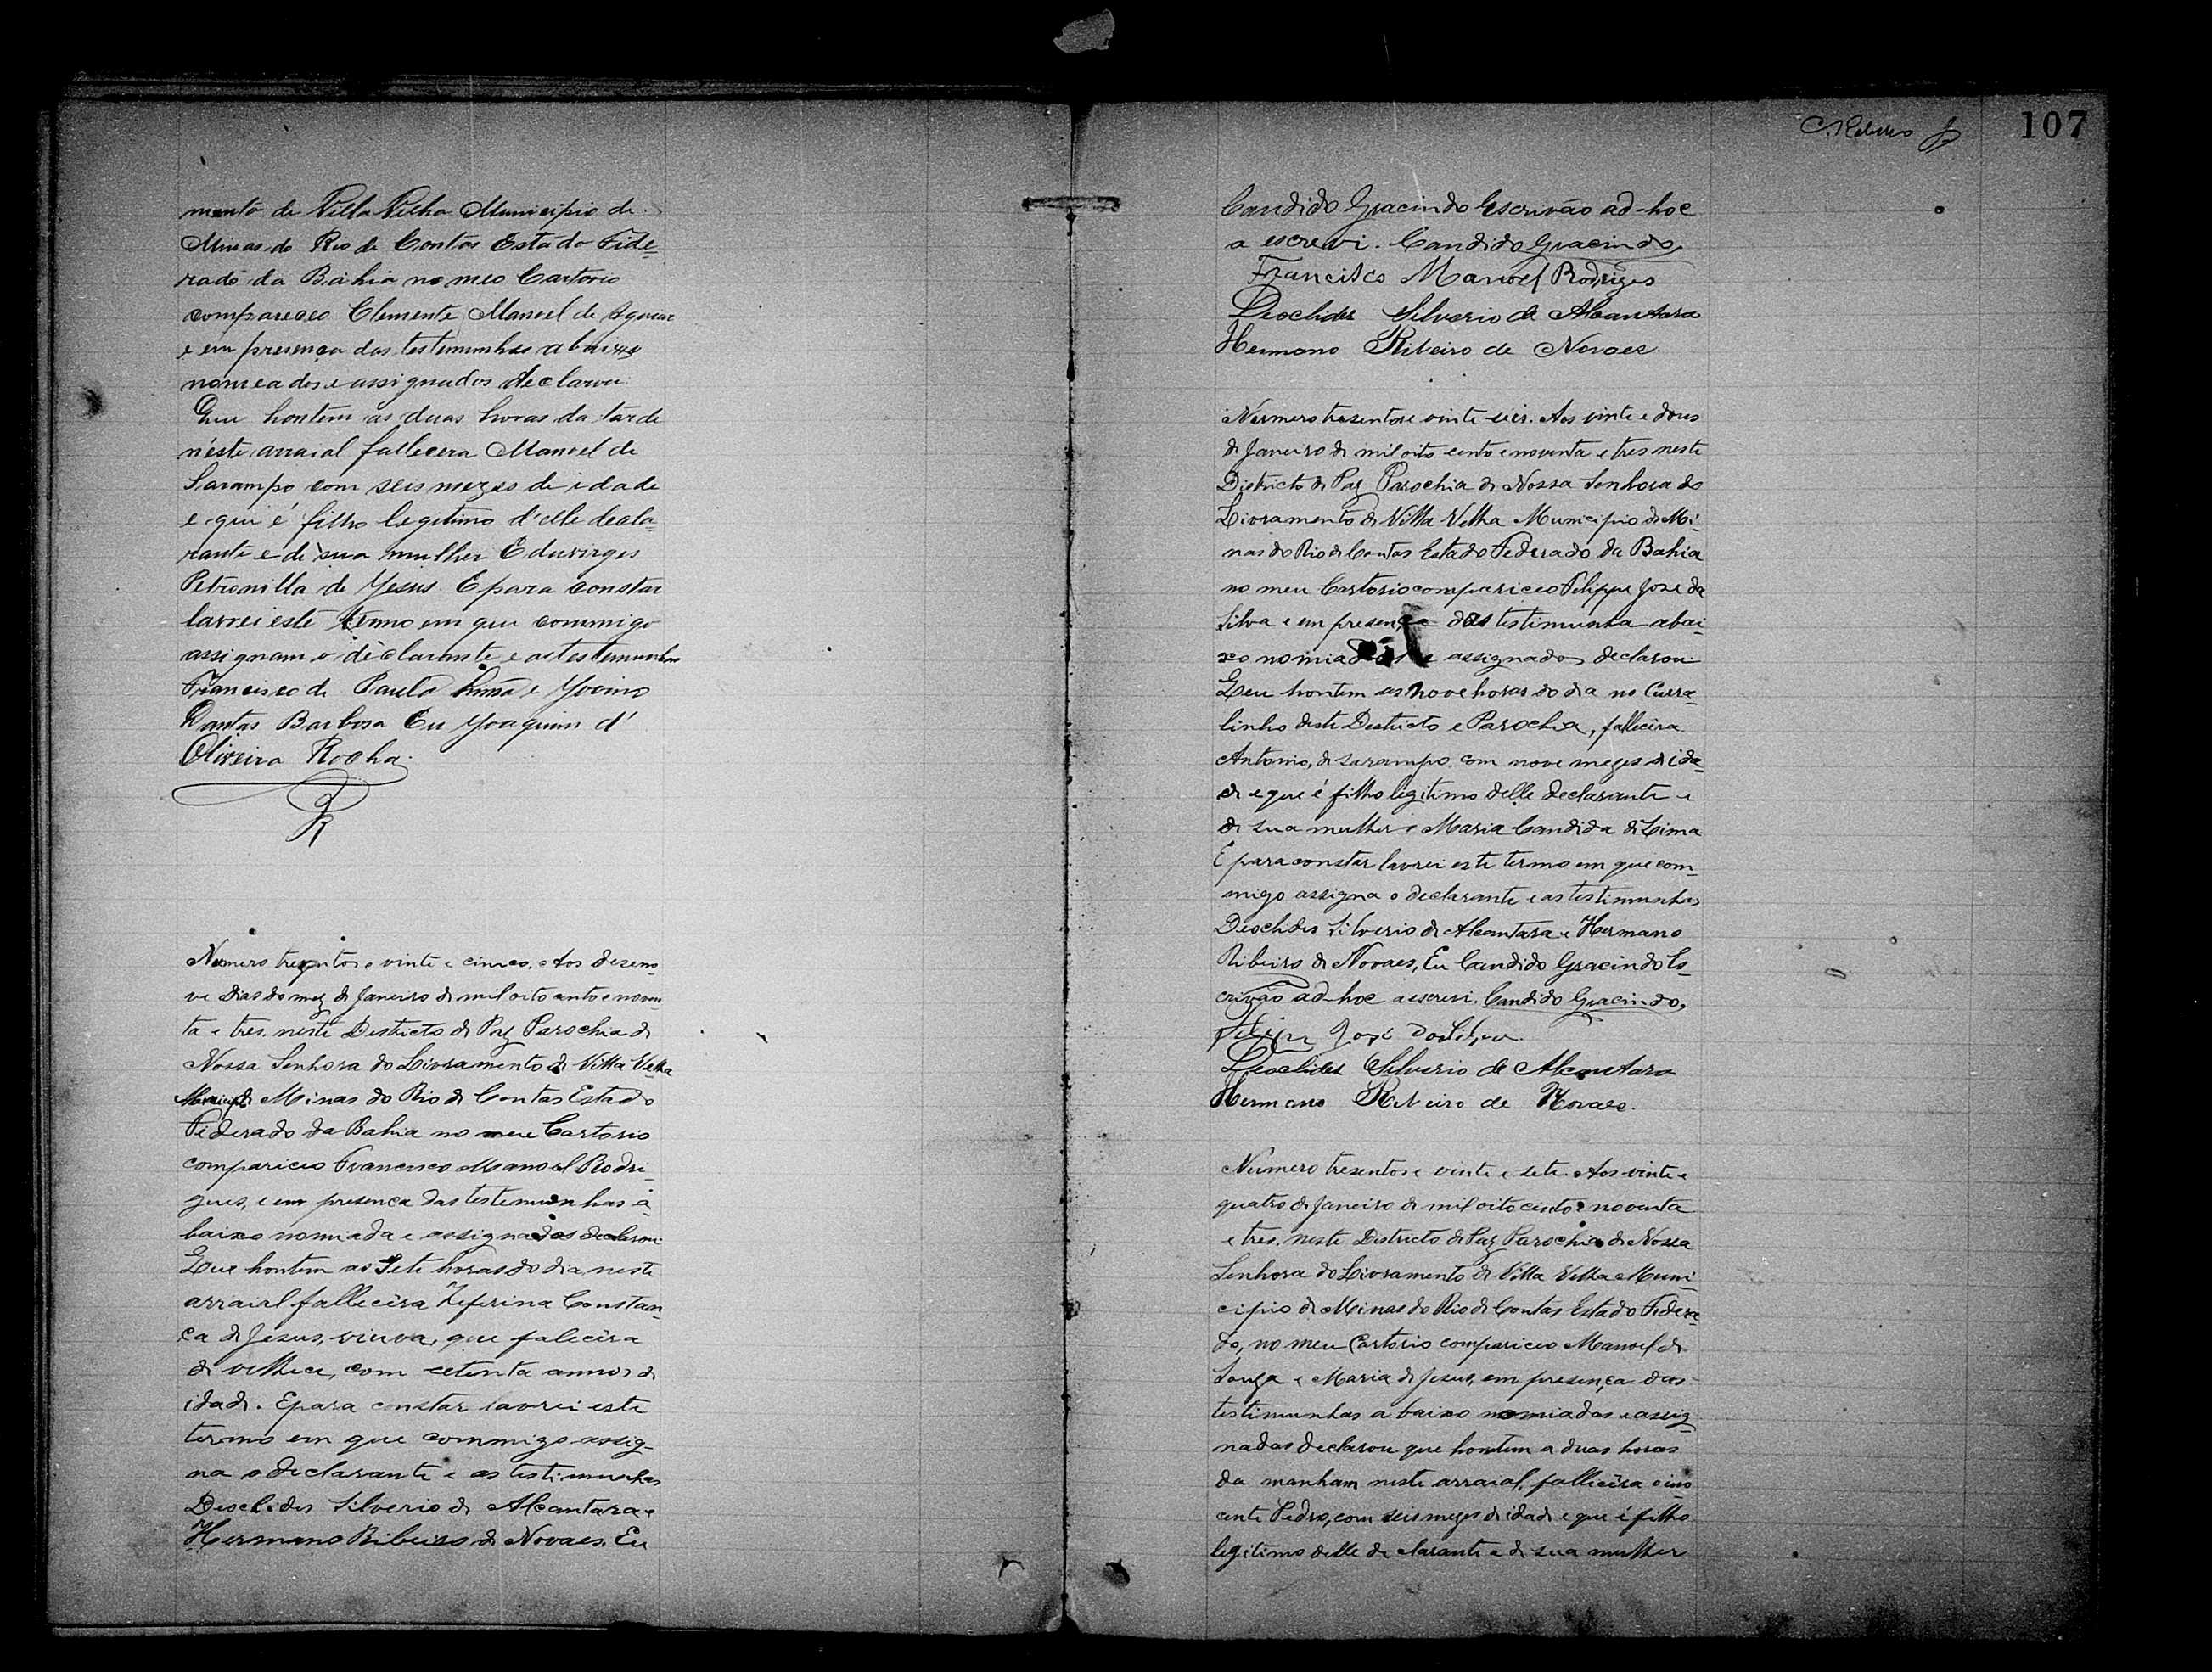 mento de Villa Velha Municipio de
Minas do Rio de Contas Estado Fide-
rado da Bahia no meo Cartorio
compareceo Clemente Manoel de Aguiar
e em presença das testemunhas abaixo
nomeados e assignados declarou
Que hontem as duas horas da tarde
néste arraial fallecera Manoel de
Sarampo com seis mezes de idade
e que é filho legitimo d'elle decla-
rante e de sua mulher Eduvirges
Petronilla de Jesus. E para constar
lavrei este termo em que commigo
assignam o déclarante e as testemunhas
Francisco de Paula e Jovino
Dantas Barbosa Eu Joaquim d'
Oliveira Rocha.
R
Numero trezentos e vinte e cinco. Aos deseno-
ve dias do mez de Janeiro de mil oito cento e noven
ta e tres, neste Destricto de Paz Parochia de
Nossa Senhora do Livramento de Villa Velha
Municipio de Minas do Rio de Contas Estado
Federado da Bahia no meu Cartorio
compariceo Francisco Manoel Rodri-
gues, e em presenca das testemunhas a
baixo nomiada e assignadas declarou
Que hontem as Sete horas do dia, neste
arraial fallecêra Zeferina Constan-
ça de Jesus, viuva, que falecêra
de velhice, com setenta annos de
idade. E para constar lavrei este
termo em que commigo assig-
na o declarante e as testimunhas
Deoclides Silverio de Alcantara e
Hermano Ribeiro de Novaes. Eu
107
Candido Gracindo Escrivão ad-hoc
a escrevi. Candido Gracindo,
Francisco Manoel Rodriges
Deoclides Silverio de Alcantara
Hermano Ribeiro de Novaes.
Numero tresentos e vinte seis. Aos vinte e dous
de Janeiro de mil oito cento e noventa e tres neste
Districto de Paz Parochia de Nossa Senhora do
Livramento de Villa Velha Municipio de Mi-
nas do Rio de Contas Estado Federado da Bahia
no meu Cartorio compariceo Felippe José da
Silva e em presença das testimunha abai-
xo nomiadas e assignados declarou
Que hontem as nove horas do dia no Curra-
linho deste Destricto e Parochia, fallecêra
Antonio, de sarampo com nove mezes de ida-
de e que é filho legitimo delle declarante e
de sua mulher Maria Candida de Lima
E para constar lavrei este termo em que com-
migo assigna o declarante e as testimunhas
Deoclides Silverio de Alcantara e Hermano
Ribeiro de Novaes, Eu Candido Gracindo Es-
crivão ad-hoc a escrevi. Candido Gracindo,
José da Silva.
Deoclides Silverio de Alcantara
Hermano Ribeiro de Novaes.
Numero tresentos e vinte e sete. Aos vinte e
quatro de Janeiro de mil oito cento e noventa
e tres, neste Districto de Paz Parochia de Nossa
Senhora do Livramento de Villa Velha Muni
cipio de Minas do Rio de Contas Estado Federa-
do, no meu Cartorio compariceo Manoel de
Souza e Maria de Jesus, em presença das
testimunhas a baixo nomiadas e assig-
nadas declarou que hontem a duas horas
da manham neste arraial, fallecêra o ino
cente Pedro, com seis mezes de idade e que é filho
legitimo delle declarante e de sua mulher